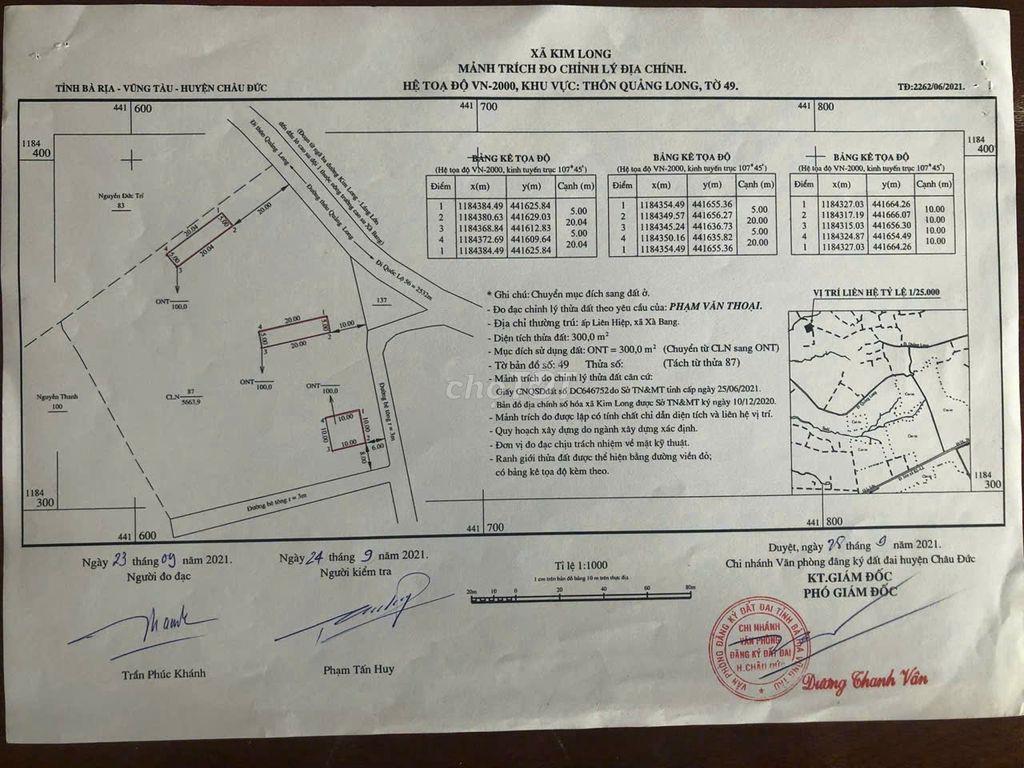 XÃ KIM LONG
MẢNH TRÍCH ĐO CHỈNH LÝ ĐỊA CHÍNH.
TỈNH BÀ RỊA - VŨNG TÀU - HUYỆN CHÂU ĐỨC
HỆ TOẠ ĐỘ VN-2000, KHU VỰC: THÔN QUẢNG LONG, TỜ 49.
TĐ:2262/06/2021.
441 600
441 700
441 800
1184 400
1184 400
Nguyễn Đức Trí
83
Đi thôn Quảng Long
Đường thôn Quảng Long
Đi Quốc Lộ 56 = 2532m
(Đoạn từ ngã ba đường Kim Long - Láng Lớn
đến đầu lô cao su đội 1 thuộc nông trường cao su Xà Bang)
20.04
5.00
20.00
4
2
5.00
20.04
3
ONT
100,0
137
4
20.00
5.00
10.00
5.00
2
3
20.00
ONT
100,0
ONT
100,0
10.00
10.00
10.00
2
3
6.00
8.00
CLN
87
5663,9
Nguyễn Thanh
100
Đường bê tông r = 3m
Đường bê tông r = 3m
1184 300
441 600
BẢNG KÊ TỌA ĐỘ
(Hệ tọa độ VN-2000, kinh tuyến trục 107°45')
Điểm x(m) y(m) Cạnh (m)
1 1184384.49 441625.84
5.00
2 1184380.63 441629.03
20.04
3 1184368.84 441612.83
5.00
4 1184372.69 441609.64
20.04
1 1184384.49 441625.84
BẢNG KÊ TỌA ĐỘ
(Hệ tọa độ VN-2000, kinh tuyến trục 107°45')
Điểm x(m) y(m) Cạnh (m)
1 1184354.49 441655.36
5.00
2 1184349.57 441656.27
20.00
3 1184345.24 441636.73
5.00
4 1184350.16 441635.82
20.00
1 1184354.49 441655.36
BẢNG KÊ TỌA ĐỘ
(Hệ tọa độ VN-2000, kinh tuyến trục 107°45')
Điểm x(m) y(m) Cạnh (m)
1 1184327.03 441664.26
10.00
2 1184317.19 441666.07
10.00
3 1184315.03 441656.30
10.00
4 1184324.87 441654.49
10.00
1 1184327.03 441664.26
* Ghi chú: Chuyển mục đích sang đất ở.
- Đo đạc chỉnh lý thửa đất theo yêu cầu của: PHẠM VĂN THOẠI.
- Địa chỉ thường trú: ấp Liên Hiệp, xã Xà Bang.
- Diện tích thửa đất: 300,0 m²
- Mục đích sử dụng đất: ONT = 300,0 m² (Chuyển từ CLN sang ONT)
- Tờ bản đồ số: 49 Thửa số: (Tách từ thửa 87)
- Mảnh trích đo chỉnh lý thửa đất căn cứ:
Giấy CNQSDđất số DC646752 do Sở TN&MT tỉnh cấp ngày 25/06/2021.
Bản đồ địa chính số hóa xã Kim Long được Sở TN&MT ký ngày 10/12/2020.
- Mảnh trích đo được lập có tính chất chỉ dẫn diện tích và liên hệ vị trí.
- Quy hoạch xây dựng do ngành xây dựng xác định.
- Đơn vị đo đạc chịu trách nhiệm về mặt kỹ thuật.
- Ranh giới thửa đất được thể hiện bằng đường viền đỏ;
có bảng kê tọa độ kèm theo.
VỊ TRÍ LIÊN HỆ TỶ LỆ 1/25.000
1184 300
441 700
441 800
Ngày 23 tháng 09 năm 2021.
Người đo đạc
Trần Phúc Khánh
Ngày 24 tháng 9 năm 2021.
Người kiểm tra
Phạm Tấn Huy
Tỉ lệ 1:1000
1 cm trên bản đồ bằng 10 m trên thực địa
20m 10 0 20 40 60 80m
Duyệt, ngày 28 tháng 9 năm 2021.
Chi nhánh Văn phòng đăng ký đất đai huyện Châu Đức
KT.GIÁM ĐỐC
PHÓ GIÁM ĐỐC
VĂN PHÒNG ĐĂNG KÝ ĐẤT ĐAI TỈNH BÀ RỊA VŨNG TÀU
CHI NHÁNH
VĂN PHÒNG
ĐĂNG KÝ ĐẤT ĐAI
H.CHÂU ĐỨC
Dương Thanh Vân